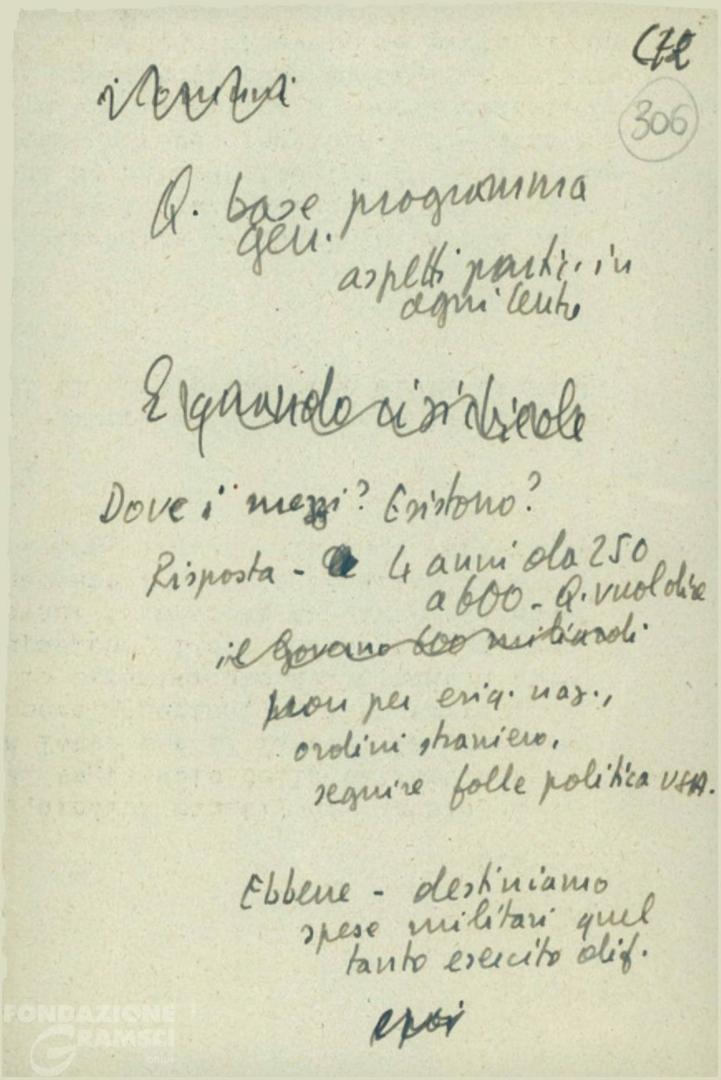 306
Q. base programma
gen.
aspetti partic. in
ogni centro
E quando ci si chiede
Dove i mezzi? Esistono?
Risposta - 4 anni da 250
a 600 - Q. vuol dire
il Governo 600 miliardi
non per esig. naz.,
ordini straniero,
seguire folle politica USA.
Ebbene - destiniamo
spese militari quel
tanto esercito dif.
e poi
FONDAZIONE
GRAMSCI